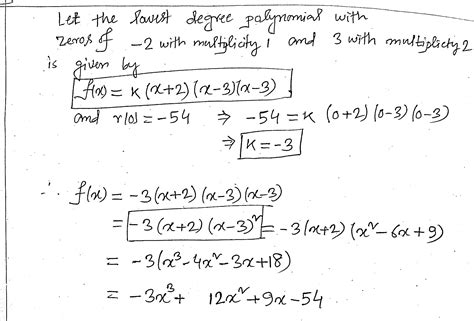 Let the lowest degree polynomial with
zeros of -2 with multplicity 1 and 3 with multiplicity 2
is given by
f(x) = K (x+2) (x-3)(x-3)
and r(0) = -54 ⇒ -54 = K (0+2) (0-3) (0-3)
⇒ K = -3
∴ f(x) = -3(x+2) (x-3)(x-3)
= -3 (x+2) (x-3)² = -3(x+2) (x²-6x+9)
= -3(x³-4x²-3x+18)
= -3x³ + 12x²+9x-54